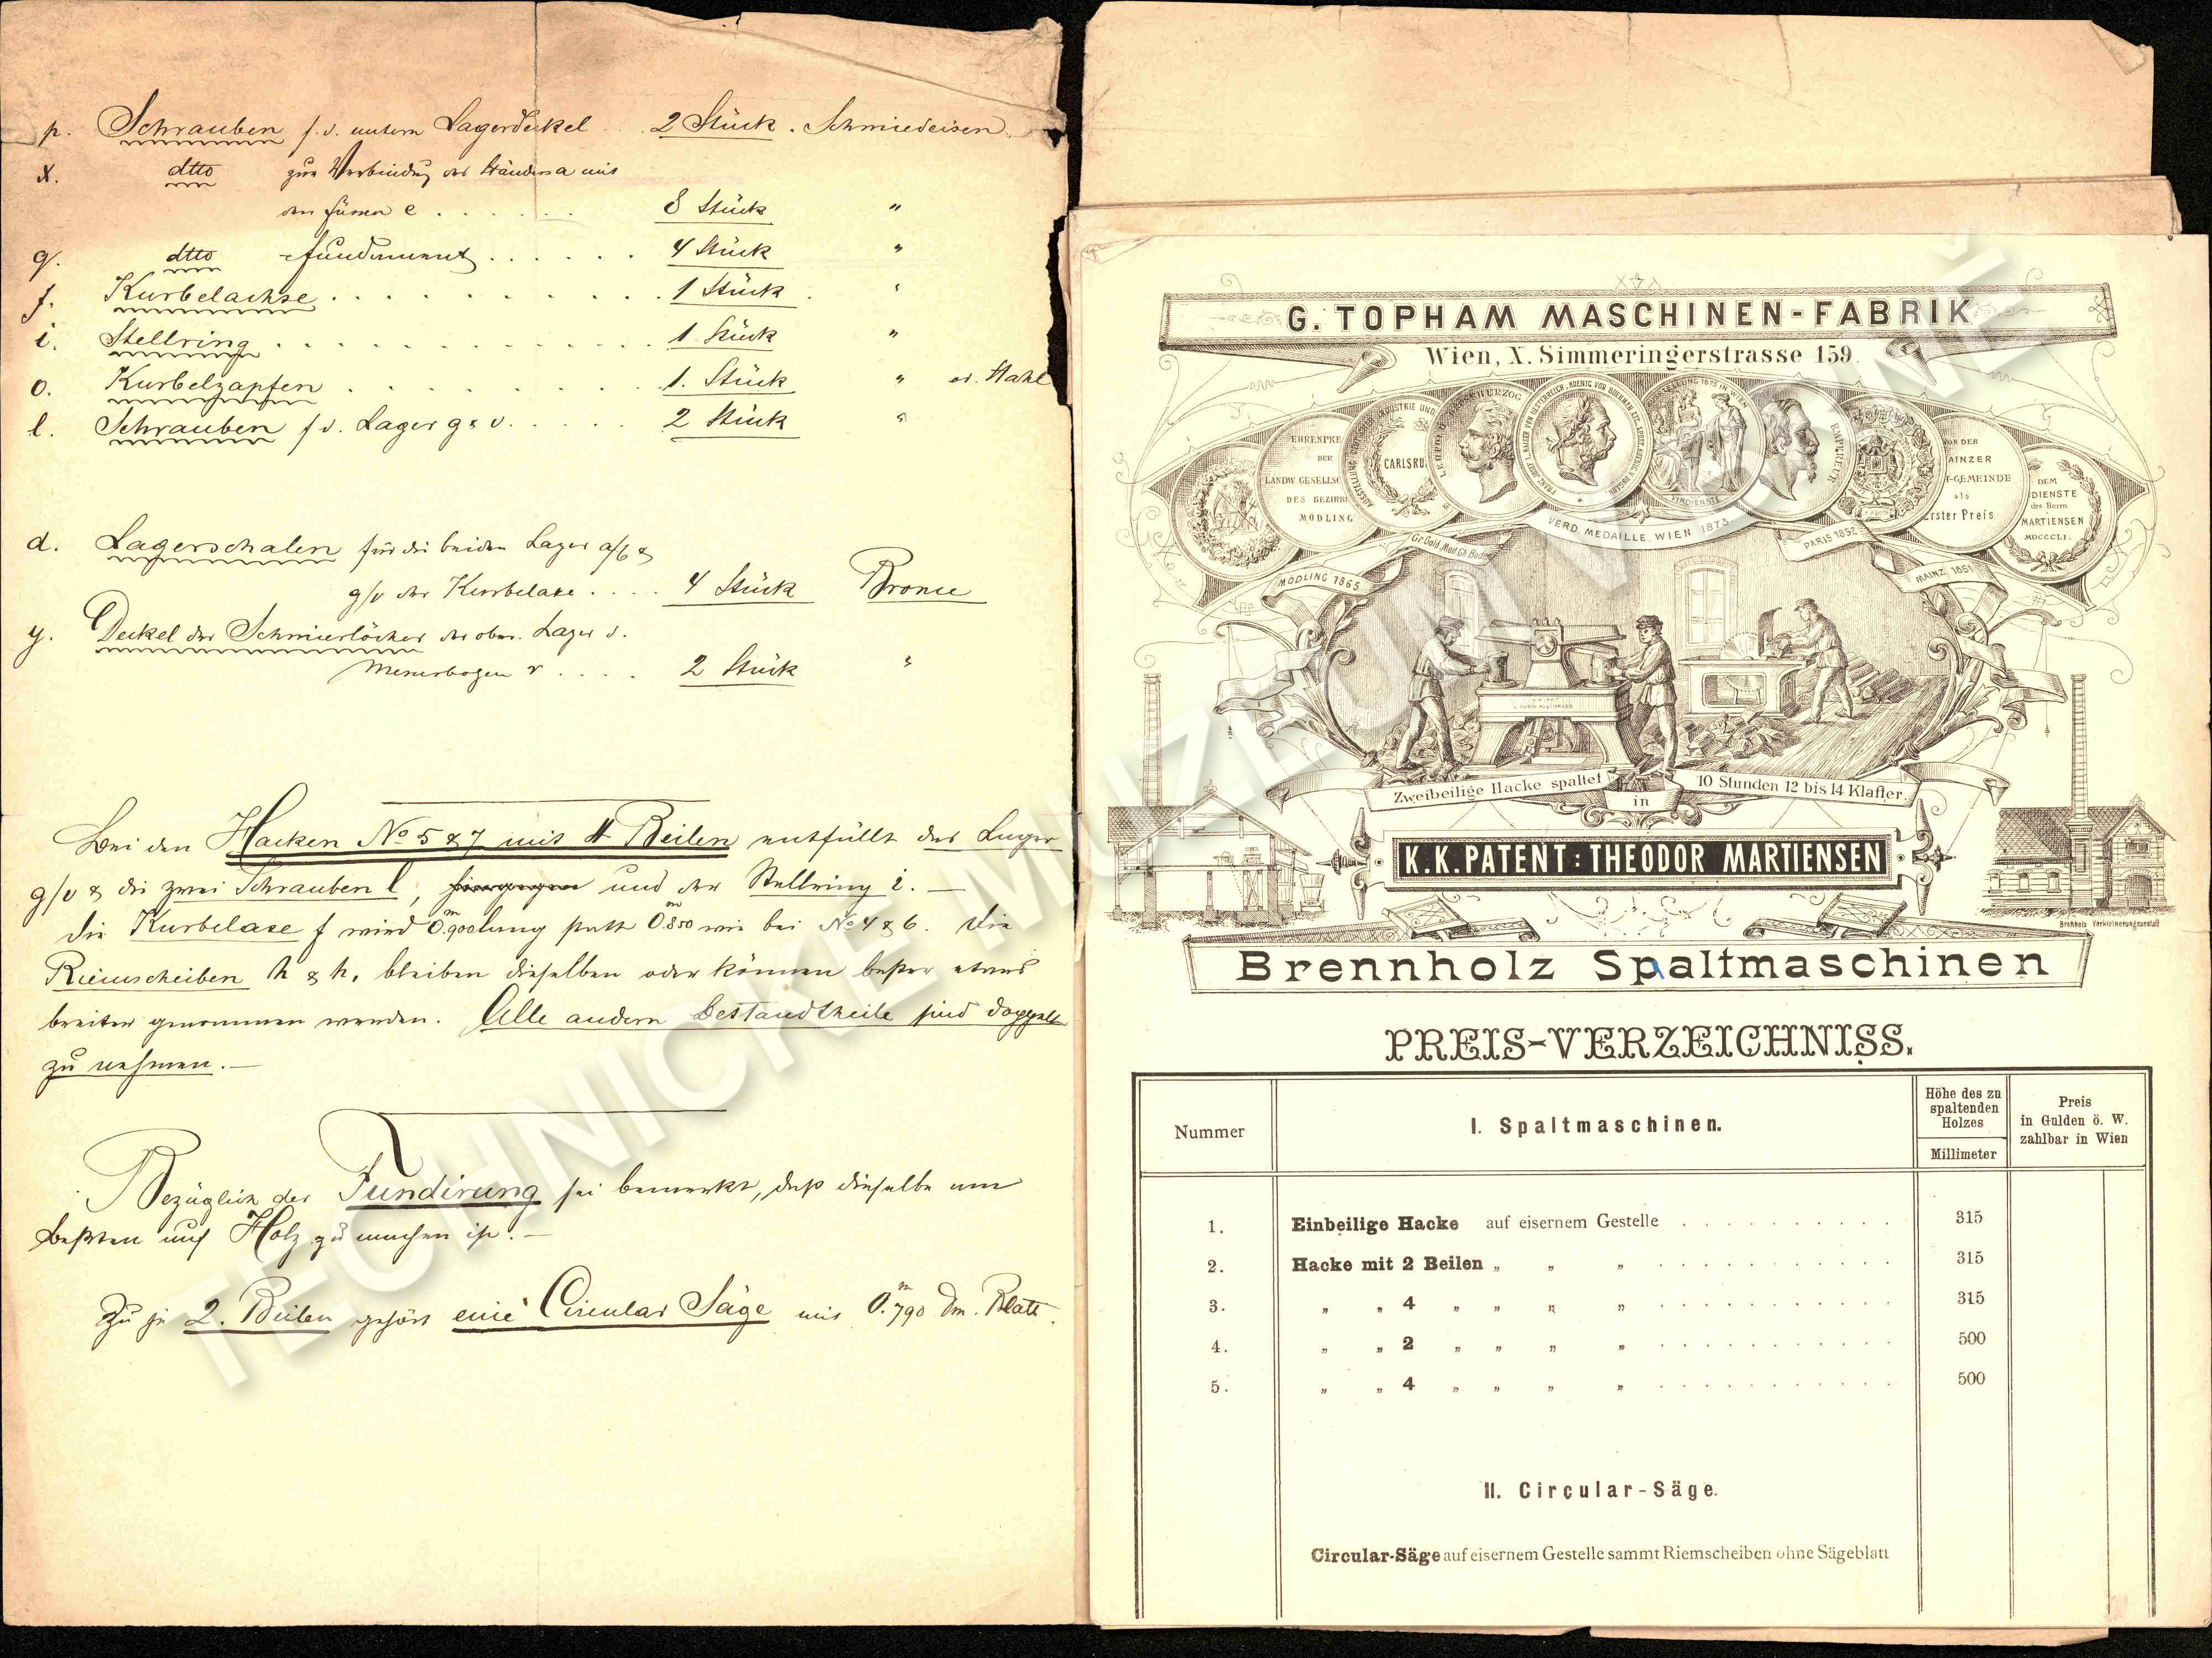 p. Schrauben f. d. untern Lagerdeckel . . 2 Stück . Schmiedeisen
x. dtto zur Verbindung des Ständers a mit
den Füssen e . . . . . . 8 Stück "
q. dtto Fundament . . . . . . 4 Stück "
f. Kurbelachse . . . . . . . . . . 1 Stück . "
i. Stellring . . . . . . . . . . . 1 Stück "
o. Kurbelzapfen . . . . . . . . . 1. Stück " od. Stahl
l. Schrauben f d. Lager g & v. . . . . . 2 Stück "
d. Lagerschalen für die beiden Lager a/b &
g/v der Kurbelaxe . . . . 4 Stück Bronce
y. Deckel der Schmierlöcher der ober. Lager d.
v . . . . 2 Stück "
Bei den Hacken No 5 & 7 mit 4 Beilen entfällt das Lager
g/v & die zwei Schrauben l, und der Stellring i. —
Die Kurbelaxe f wird 0.m900 lang statt 0.m850 wie bei No 4 & 6. Die
Riemscheiben h & h, bleiben dieselben oder können besser etwas
breiter genommen werden. Alle andern Bestandtheile sind doppelt
zu nehmen. —
Bezüglich der Fundirung sei bemerkt, daß dieselbe am
beßten auf Holz zu machen ist. —
Zu je 2. Beilen gehört eine Circular Säge mit 0.m790 Dm. Blatt.
G. TOPHAM MASCHINEN-FABRIK
Wien, X. Simmeringerstrasse 159.
EHRENPRE
DER
LANDW GESELLSC
DES BEZIRK
MÖDLING
CARLSRU
VERDIENSTE
VON DER
AINZER
F-GEMEINDE
als
Erster Preis
DEM
VDIENSTE
des Herrn
MARTIENSEN
MDCCCLI.
VERD. MEDAILLE. WIEN 1873.
Gr Gold Med Gh Baden
PARIS 1852
MÖDLING 1865
MAINZ 1851
Zweibeilige Hacke spaltet in 10 Stunden 12 bis 14 Klafter.
K.K. PATENT: THEODOR MARTIENSEN
Brenholz Verkleinerungsanstalt
Brennholz Spaltmaschinen
PREIS-VERZEICHNISS.
Nummer I. Spaltmaschinen. Höhe des zu spaltenden Holzes Millimeter Preis in Gulden ö. W. zahlbar in Wien
1. Einbeilige Hacke auf eisernem Gestelle . . . . . . . . . . . 315
2. Hacke mit 2 Beilen „ „ „ . . . . . . . . . . . 315
3. „ „ 4 „ „ „ „ . . . . . . . . . . . 315
4. „ „ 2 „ „ „ „ . . . . . . . . . . . 500
5. „ „ 4 „ „ „ „ . . . . . . . . . . . 500
II. Circular-Säge.
Circular-Säge auf eisernem Gestelle sammt Riemscheiben ohne Sägeblatt
TECHNICKÉ MUZEUM V BRNĚ